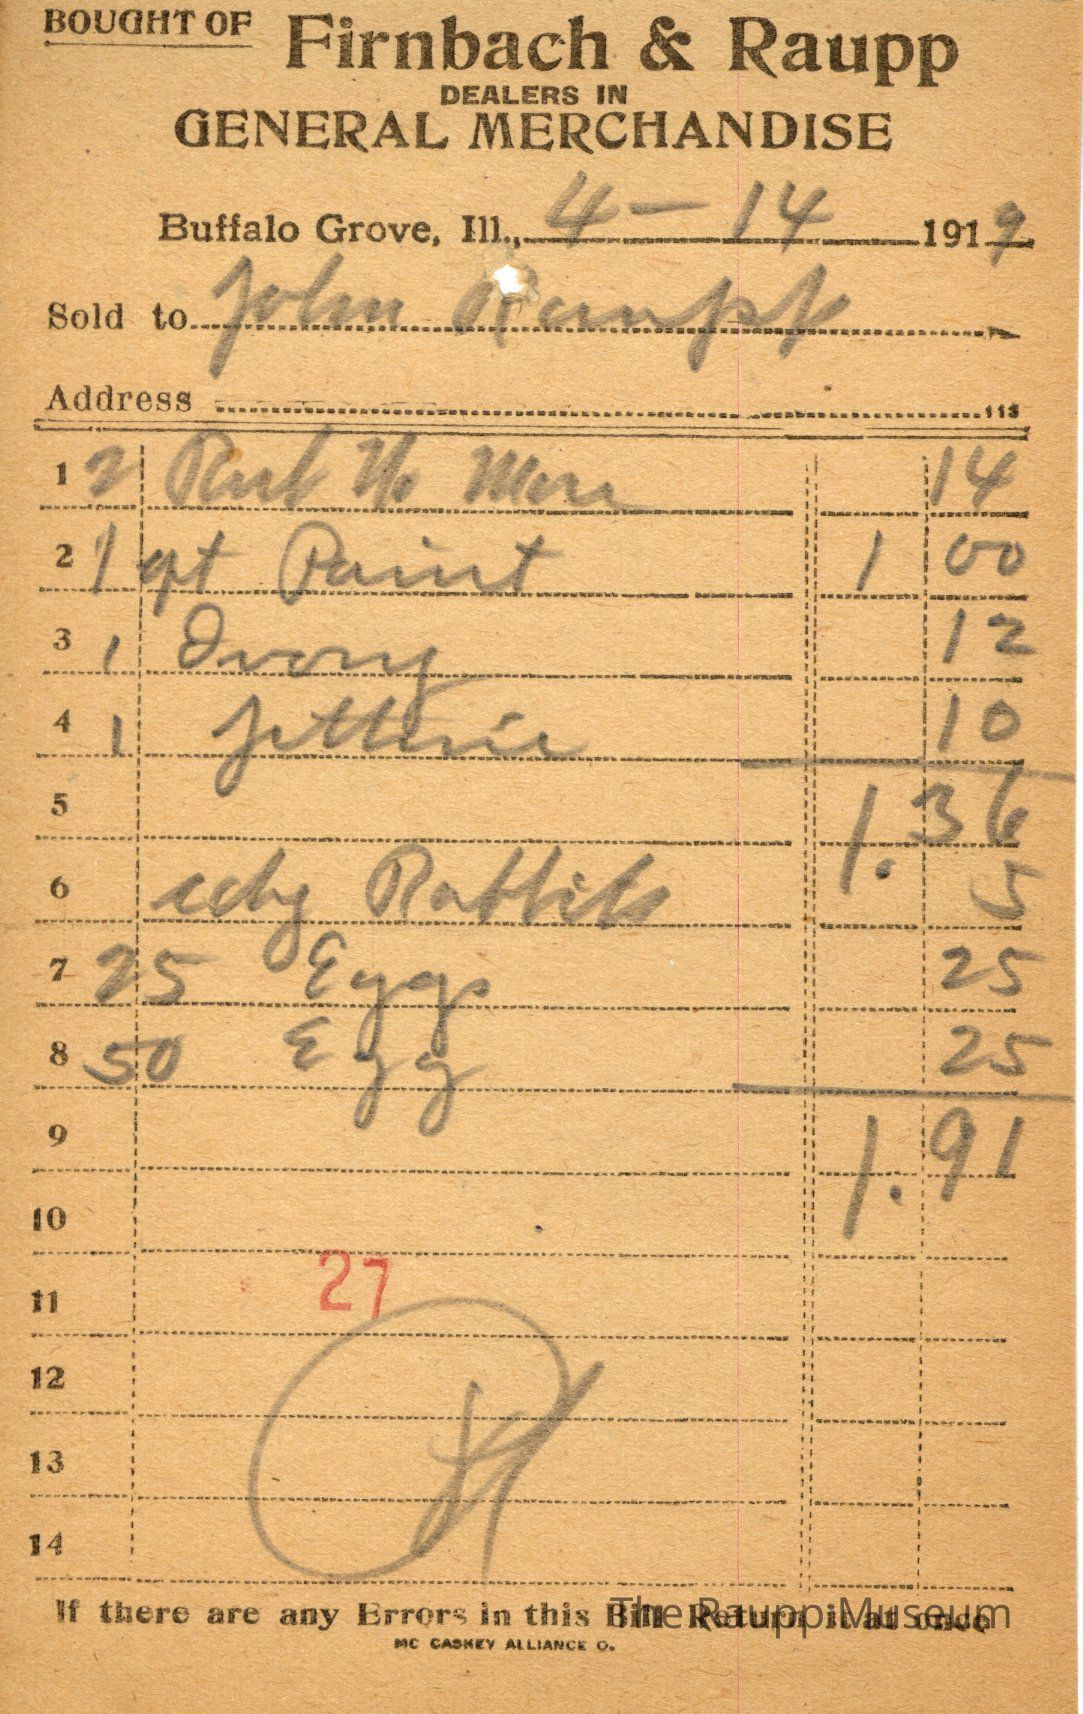 BOUGHT OF Firnbach & Raupp
DEALERS IN
GENERAL MERCHANDISE
Buffalo Grove, Ill., 4 - 14 1919
Sold to John Raupp
Address
113
1 2 Rub No More 14
2 1 qt Paint 1 00
3 1 Ivory 12
4 1 10
5 1.36
6 Rabbits 5
7 25 Eggs 25
8 50 Egg 25
9 1.91
10
27
11
12
13
14
If there are any Errors in this Bill Return it at once
The Raupp Museum
MC CASKEY ALLIANCE O.